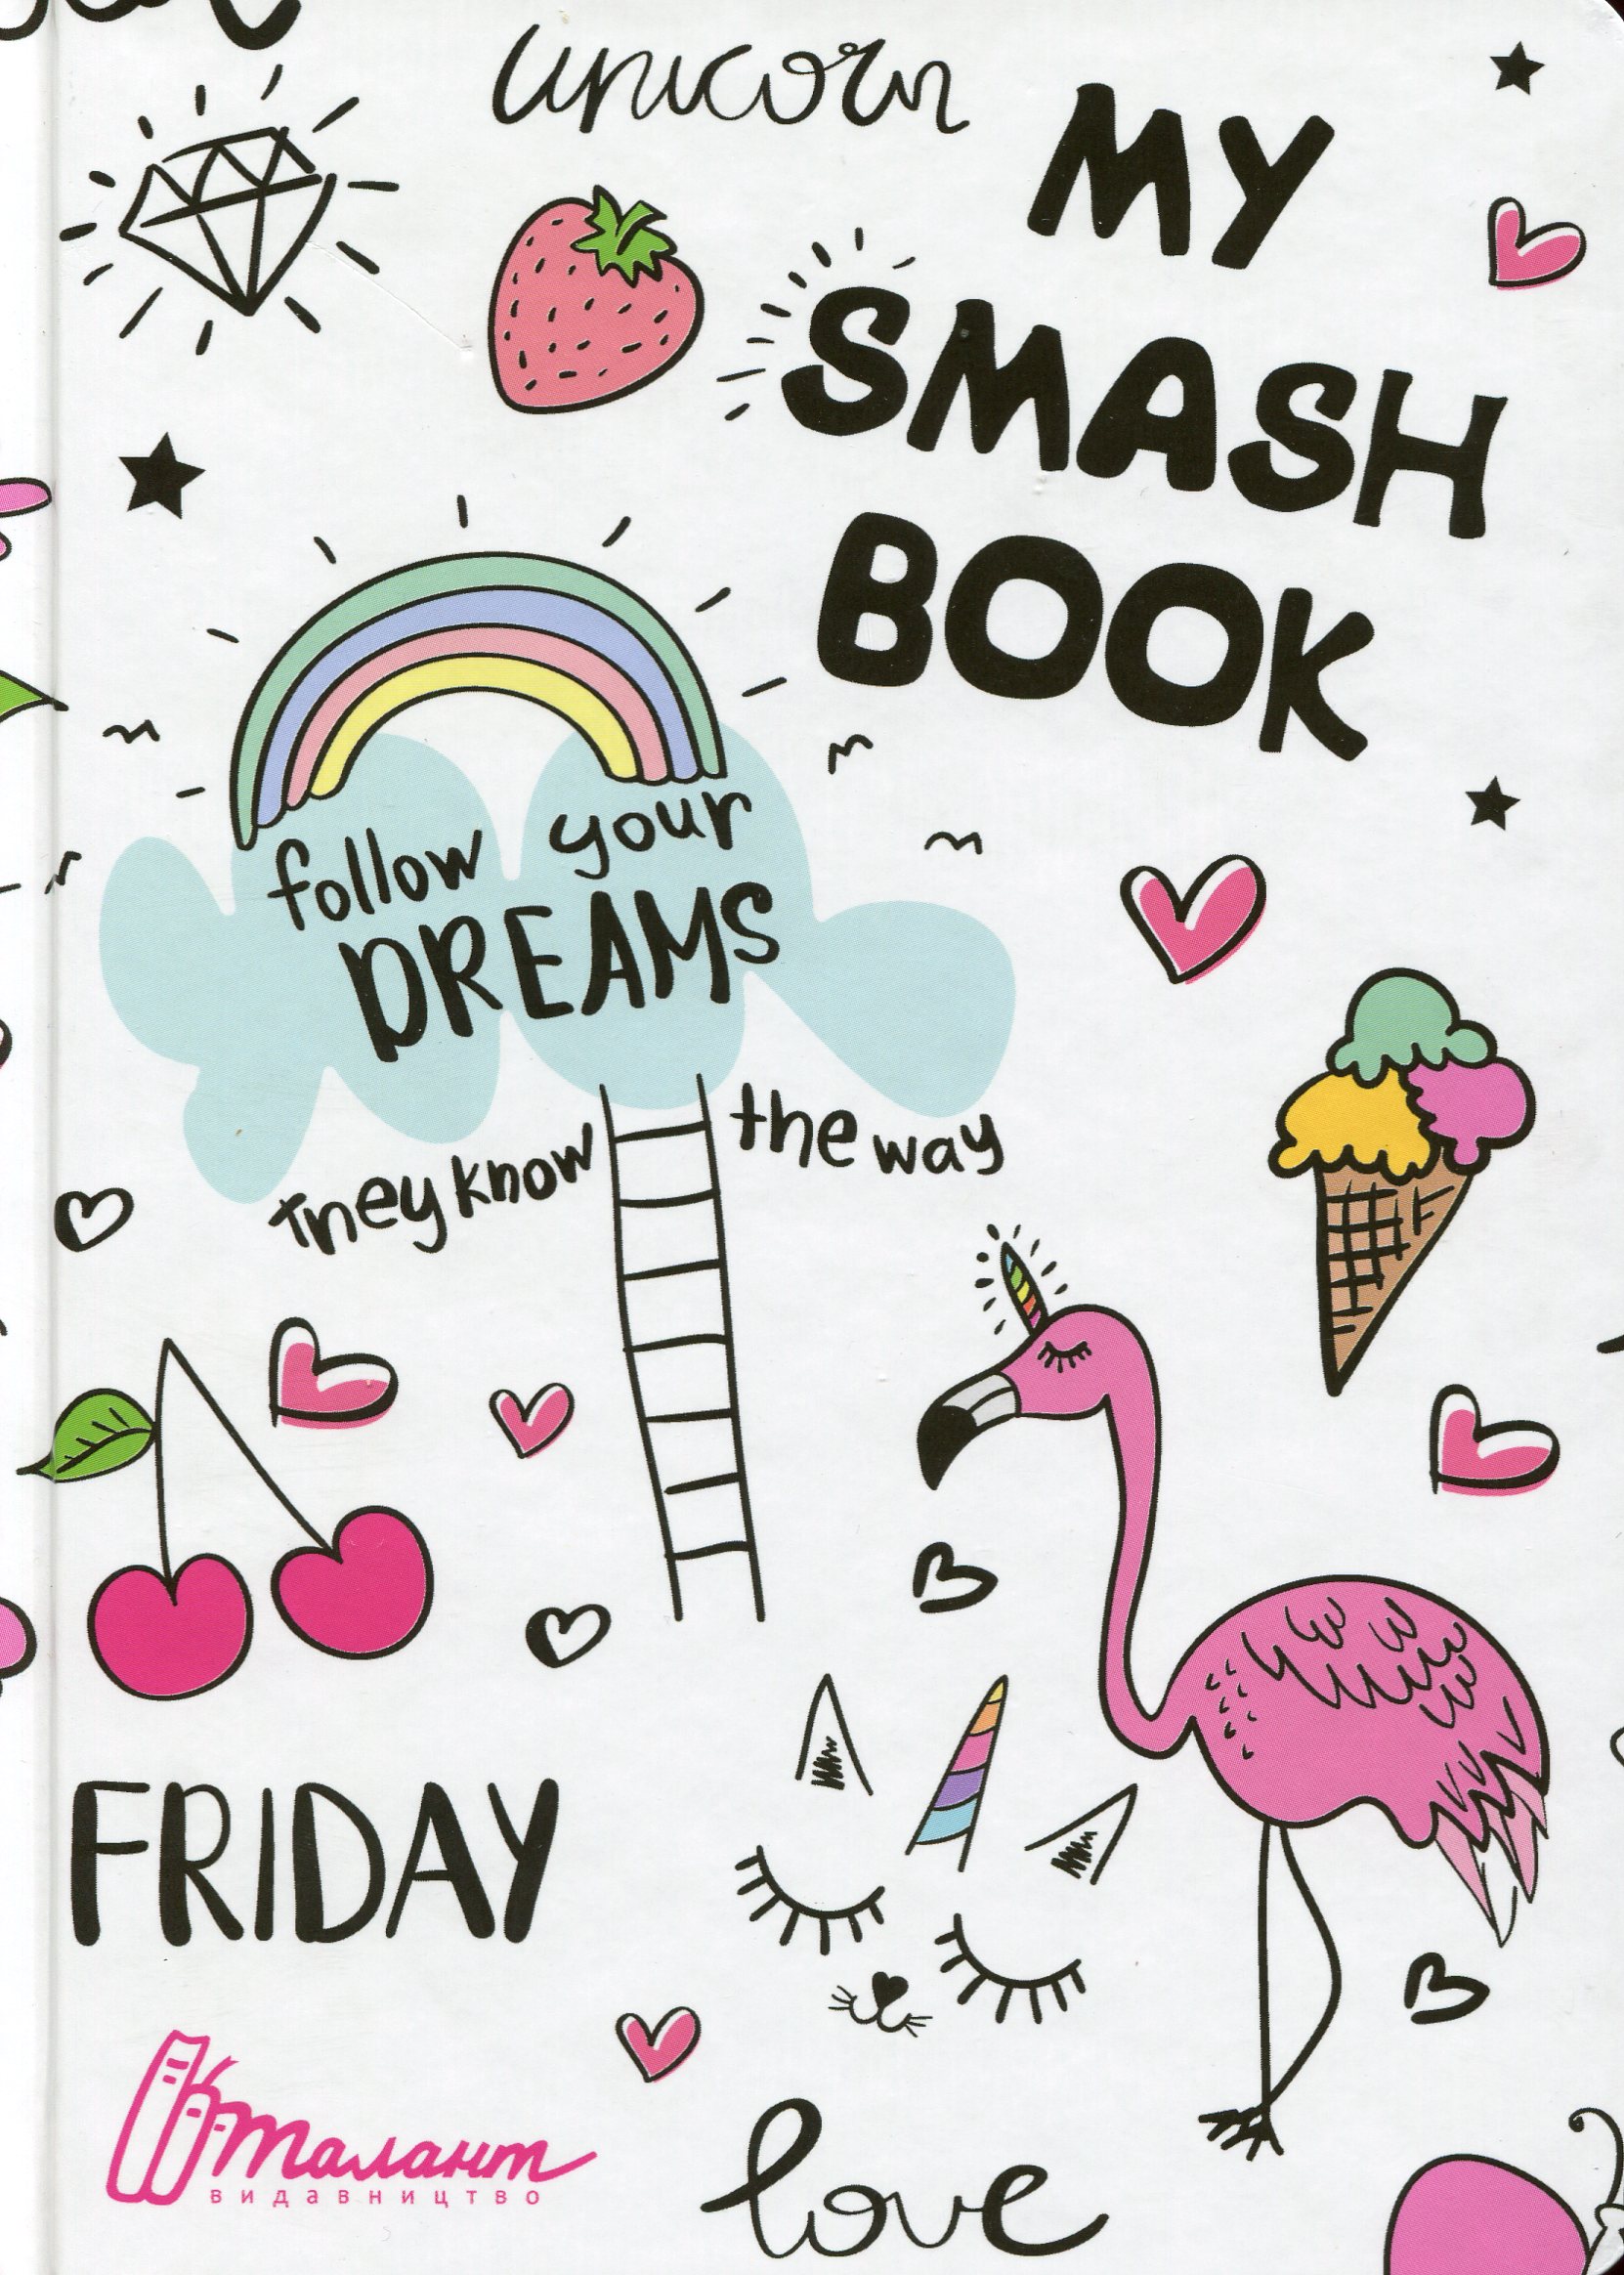 unicorn
MY
SMASH
BOOK
follow your
DREAMS
they know the way
FRIDAY
Талант
видавництво
love